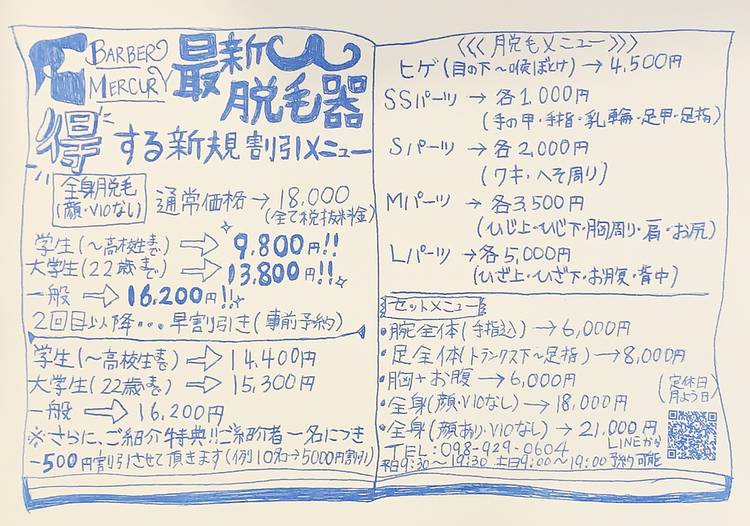 BARBER
MERCURY
最新
脱毛器
得する新規割引メニュー
全身脱毛
(顔・VIOなし)
通常価格→18,000
(全て税抜料金)
学生(〜高校生まで)⇒9,800円!!
大学生(22歳まで)⇒13,800円!!
一般⇒16,200円!!
2回目以降・・・早割引き(事前予約)
学生(〜高校生まで)⇒14,400円
大学生(22歳まで)⇒15,300円
一般⇒16,200円
※さらに、ご紹介特典!!ご紹介者一名につき
-500円割引させて頂きます(例)10名→5000円割引)
<<<脱毛メニュー>>>
ヒゲ(目の下〜喉ぼとけ)→4,500円
SSパーツ→各1,000円
(手の甲・手指・乳輪・足甲・足指)
Sパーツ→各2,000円
(ワキ・へそ周り)
Mパーツ→各3,500円
(ひじ上・ひじ下・胸周り・肩・お尻)
Lパーツ→各5,000円
(ひざ上・ひざ下・お腹・背中)
セットメニュー
・腕全体(手指込)→6,000円
・足全体(トランクス下〜足指)→8,000円
・胸+お腹→6,000円
・全身(顔・VIOなし)→18,000円
・全身(顔あり・VIOなし)→21,000円
(定休日
月よう日)
TEL:098-929-0604
LINEから
予約可能
平日9:30〜19:30 土日9:00〜19:00